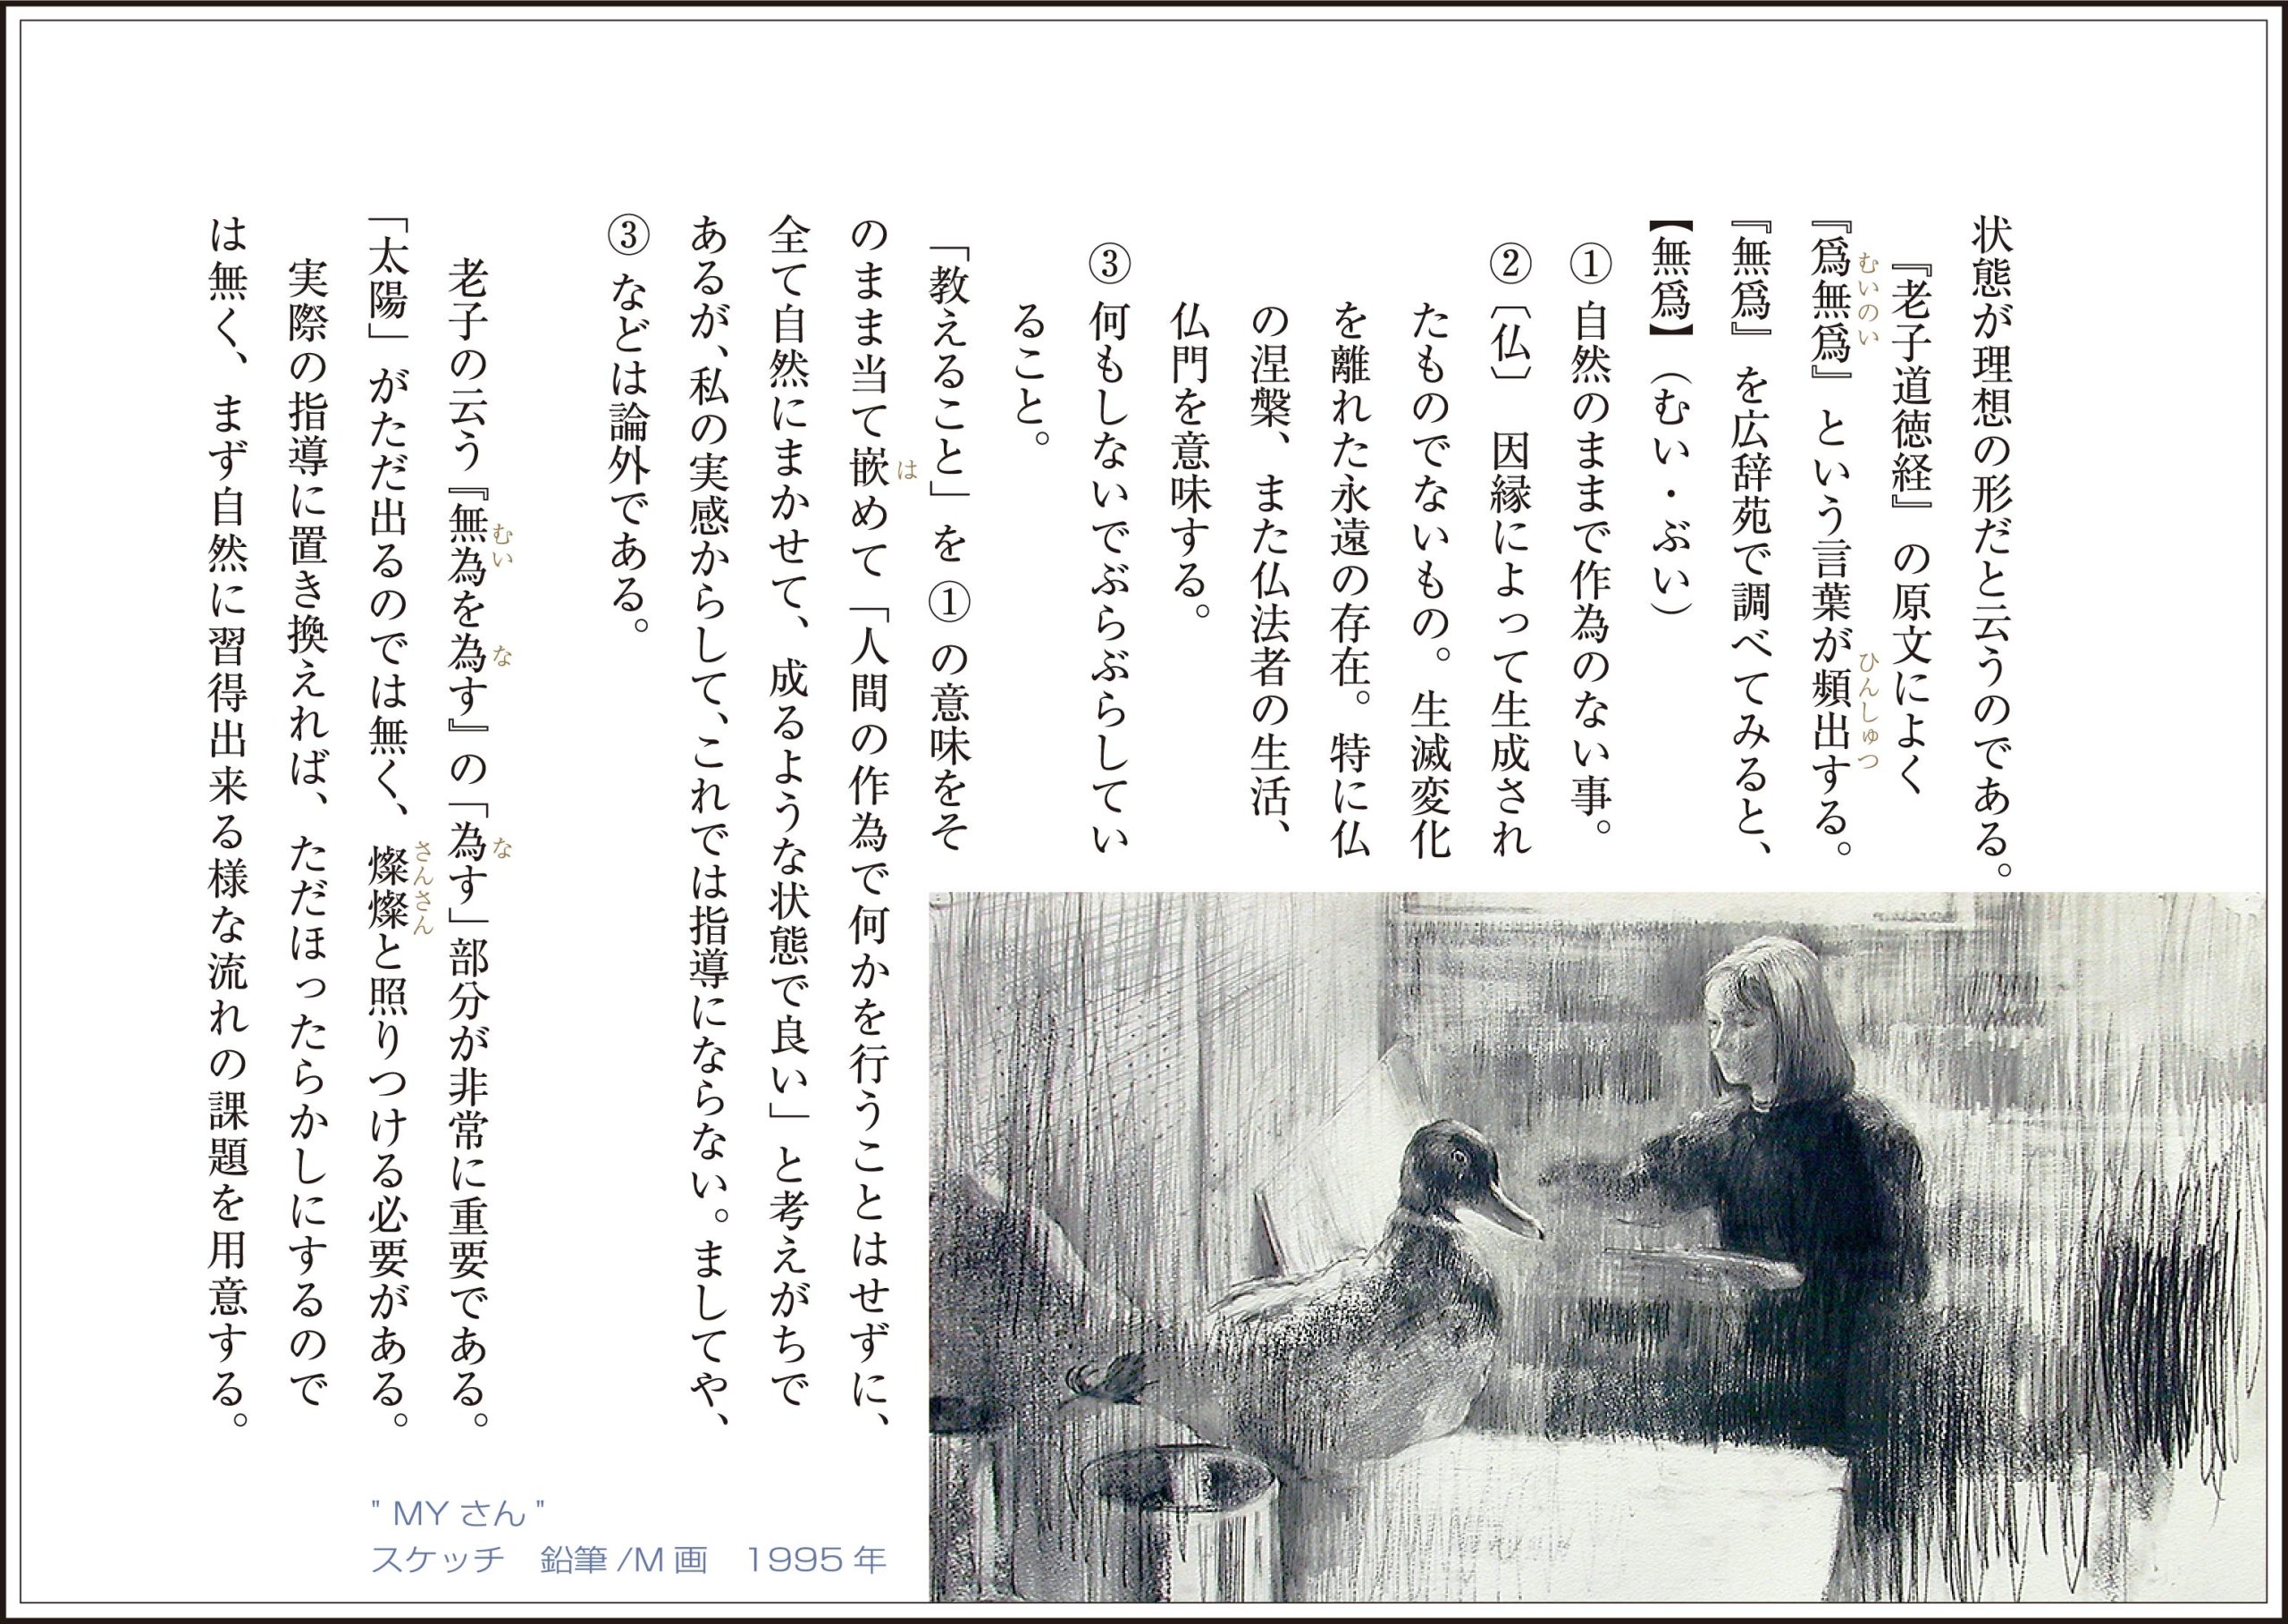 状態が理想の形だと云うのである。
『老子道徳経』の原文によく
『爲無爲』という言葉が頻出する。
むいのい
ひんしゅつ
『無爲』を広辞苑で調べてみると、
【無爲】（むい・ぶい）
① 自然のままで作為のない事。
② 〔仏〕 因縁によって生成され
たものでないもの。生滅変化
を離れた永遠の存在。特に仏
の涅槃、また仏法者の生活、
仏門を意味する。
③ 何もしないでぶらぶらしてい
ること。
「教えること」を ① の意味をそ
のまま当て嵌めて「人間の作為で何かを行うことはせずに、
は
全て自然にまかせて、成るような状態で良い」と考えがちで
あるが、私の実感からして、これでは指導にならない。ましてや、
③ などは論外である。
老子の云う『無為を為す』の「為す」部分が非常に重要である。
むい
な
な
「太陽」がただ出るのでは無く、燦燦と照りつける必要がある。
さんさん
実際の指導に置き換えれば、ただほったらかしにするので
は無く、まず自然に習得出来る様な流れの課題を用意する。
" MY さん "
スケッチ 鉛筆 /M 画 1995 年